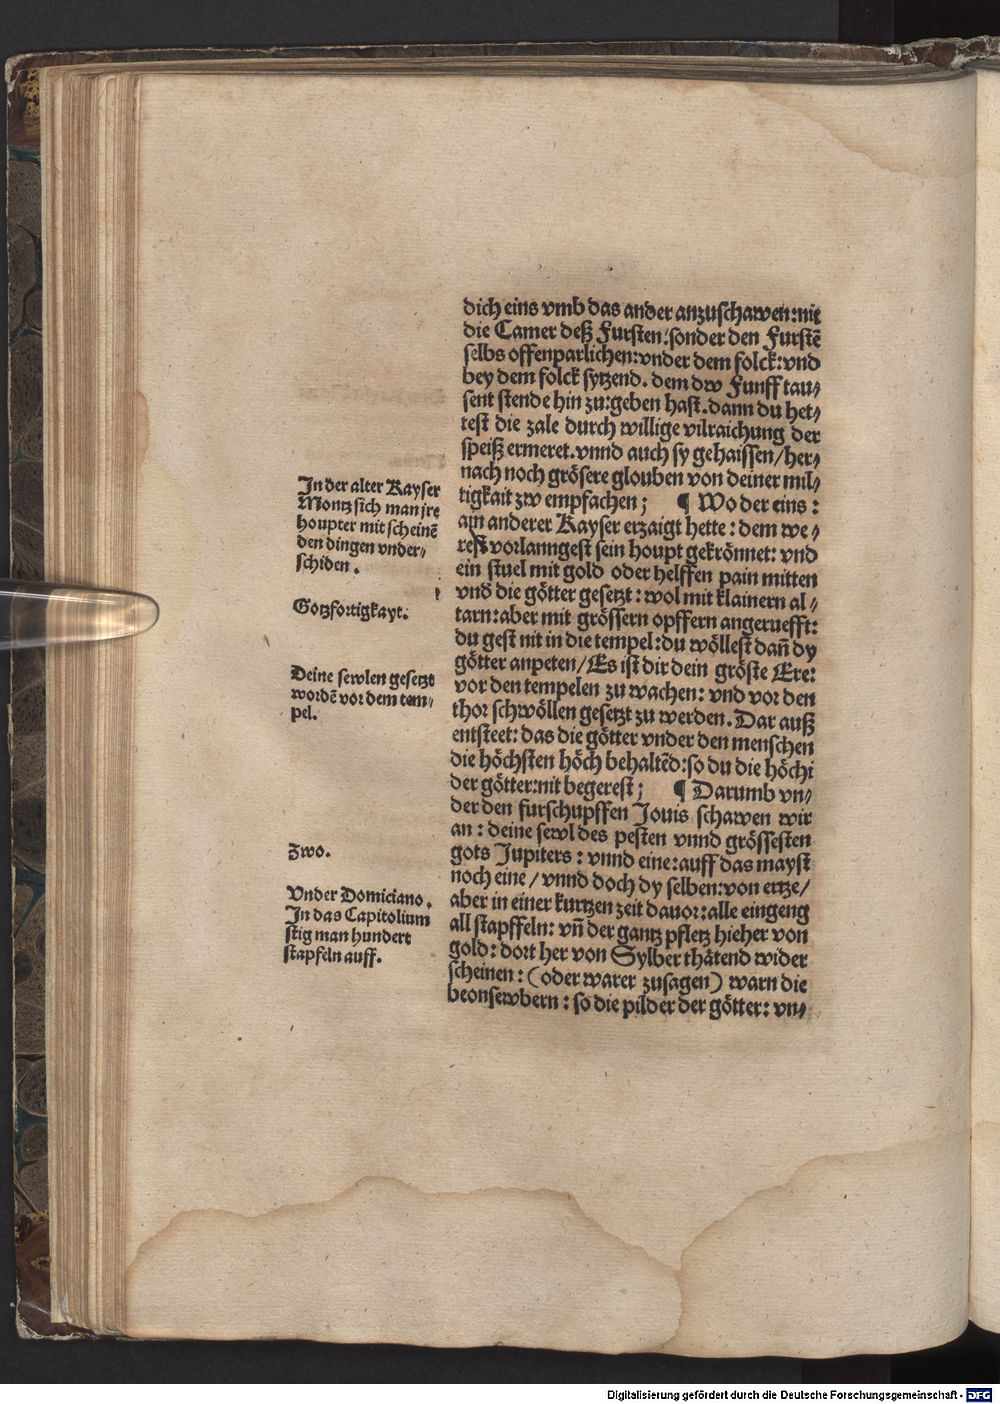 dich eins vmb das ander anzuschawen: nit
die Camer deß Fursten: sonder den Furstẽ
selbs offenparlichen: vnder dem folck: vnd
bey dem folck sytzend. dem dw Funff tau⸗
sent stende hin zu: geben hast. dann du het⸗
test die zale durch willige vilraichung der
speiß ermeret. vnnd auch sy gehaissen / her⸗
nach noch grösere glouben von deiner mil⸗
tigkait zw empfachen; ¶ Wo der eins:
ain anderer Kayser erzaigt hette: dem we⸗
reß vorlanngest sein houpt gekrönnet: vnd
ein stuel mit gold oder helffen pain mitten
vnd die götter gesetzt: wol mit klainern al⸗
tarn: aber mit grössern opffern angeruefft:
du gest nit in die tempel: du wöllest dañ dy
götter anpeten / Es ist dir dein gröste Ere:
vor den tempelen zu wachen: vnd vor den
thor schwöllen gesetzt zu werden. Dar auß
entsteet: das die götter vnder den menschen
die höchsten höch behaltẽd: so du die höchi
der götter: nit begerest; ¶ Darumb vn⸗
der den furschupffen Jouis schawen wir
an: deine sewl des pesten vnnd grössesten
gots Jupiters: vnnd eine: auff das mayst
noch eine / vnnd doch dy selben: von ertze /
aber in einer kurtzen zeit dauor: alle eingeng
all stapffeln: vñ der gantz pfletz hieher von
gold: dort her von Sylber thåtend wider
scheinen: (oder warer zusagen) warn die
beonsewbern: so die pilder der götter: vn⸗
In der alter Kayser
Montz sich man jre
houpter mit scheinẽ
den dingen vnder⸗
schiden.
Gotzfortigkayt.
Deine sewlen gesetzt
wordẽ vor dem tem⸗
pel.
Zwo.
Vnder Domiciano.
In das Capitolium
stig man hundert
stapfeln auff.
Digitalisierung gefördert durch die Deutsche Forschungsgemeinschaft - DFG